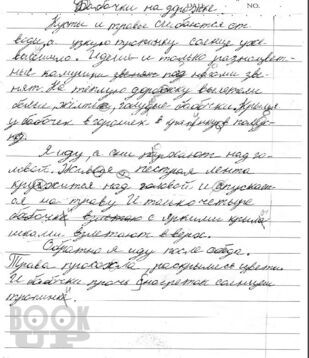 Бабочки на дорожке. NO.
Кусты и травы сгибаются от
воды, узкую тропинку солнце уже
высушило. Идёшь и только разноцвет-
ные камушки звенят под ногами зве-
нят. На тёплую дорожку вылетели
белые, жёлтые, голубые бабочки. Крылья
у бабочек в горошек в и в
Я иду, а они порхают над го-
ловой. Живая пестрая лента
кружится над головой и опускает-
ся на траву. И только четыре
бабочки с яркими крылы-
шками взлетают вверх.
Обратно я иду после обеда.
Трава просохла, раскрылись цветы.
И бабочки прочь нагретой солнцем
тропинки.
BOOK UP